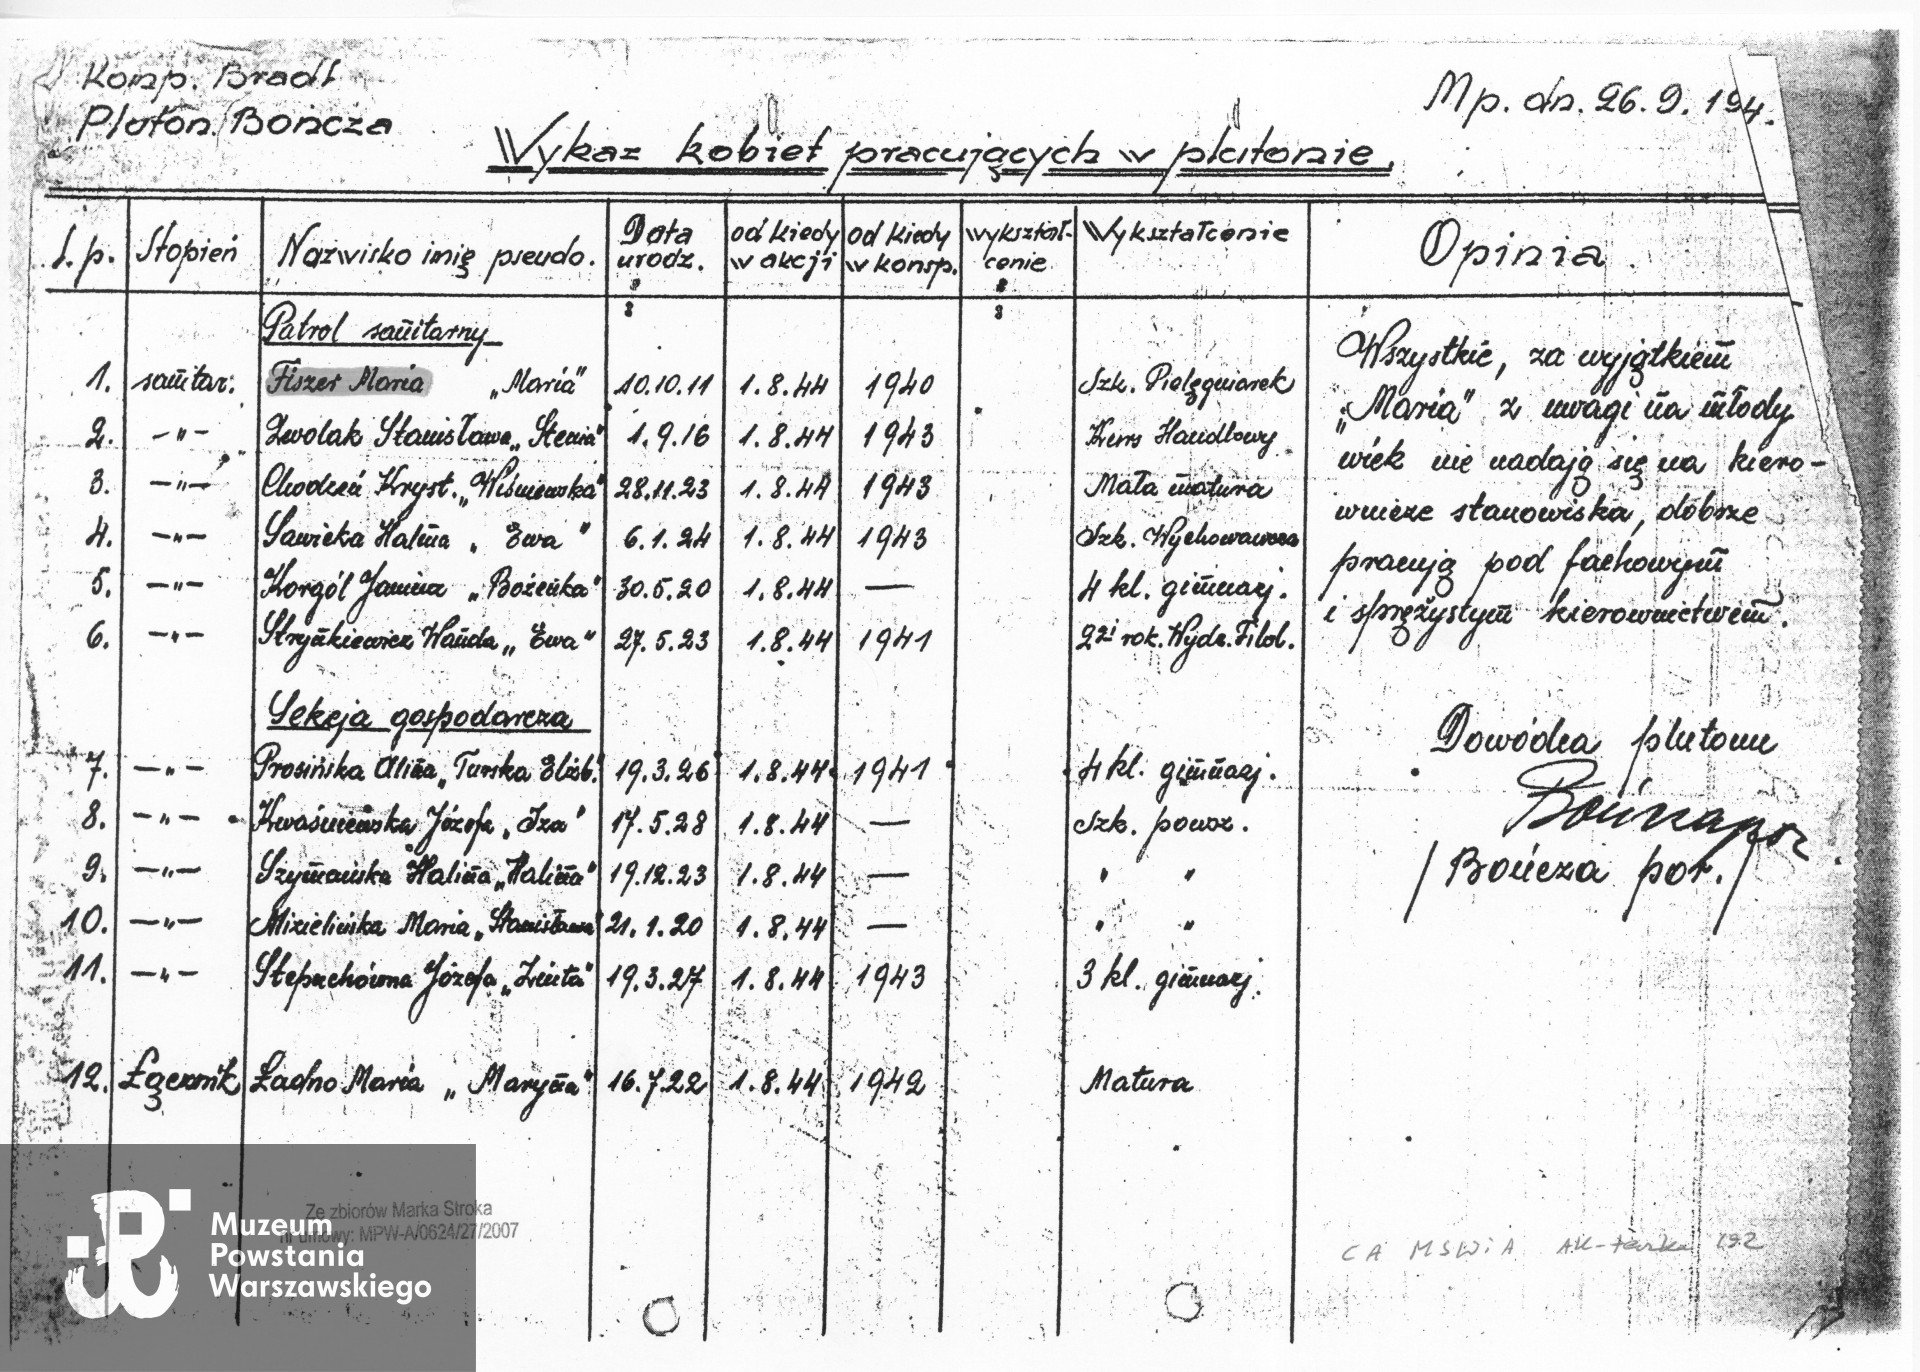 Komp. Bradl
Pluton Bończa
Mp. dn. 26.9.194.
Wykaz kobiet pracujących w plutonie.
L.p. Stopień Nazwisko imię pseudo. Data urodz. od kiedy w akcji od kiedy w konsp. wykształcenie Wykształcenie Opinia
Patrol sanitarny
1. sanitar. Fiszer Maria "Maria" 10.10.11 1.8.44 1940 Szk. Pielęgniarek
2. -"- Zwolak Stanisława "Stenia" 1.9.16 1.8.44 1943 Kurs Handlowy
3. -"- Chodzeń Kryst. "Wiśniewska" 28.11.23 1.8.44 1943 Mała matura
4. -"- Sawicka Halina "Ewa" 6.1.24 1.8.44 1943 Szk. Wychowawcza
5. -"- Korgól Janina "Bożeńka" 30.5.20 1.8.44 — 4 kl. gimnazj.
6. -"- Stryjkiewicz Wanda "Ewa" 27.5.23 1.8.44 1941 2gi rok. Wydz. Filol.
Sekcja gospodarcza
7. -"- Prosińska Alina "Turska Elżb." 19.3.26 1.8.44 1941 4 kl. gimnazj.
8. -"- Kwaśniewska Józefa "Iza" 17.5.28 1.8.44 — Szk. powsz.
9. -"- Szymańska Halina "Halina" 19.12.23 1.8.44 — " "
10. -"- Mizielińska Maria "Stanisława" 21.1.20 1.8.44 — " "
11. -"- Stepuchówna Józefa "Zmita" 19.3.27 1.8.44 1943 3 kl. gimnazj.
12. Łącznik Ładno Maria "Maryna" 16.7.22 1.8.44 1942 Matura
Wszystkie, za wyjątkiem
"Maria" z uwagi na młody
wiek nie nadają się na kiero-
wnicze stanowiska, dobrze
pracują pod fachowym
i sprężystym kierownictwem.
Dowódca plutonu
Bończa por.
/Bończa por./
Ze zbiorów Marka Stroka
nr umowy: MPW-A/0624/27/2007
Muzeum
Powstania
Warszawskiego
CA MSWiA AK-teczka 192